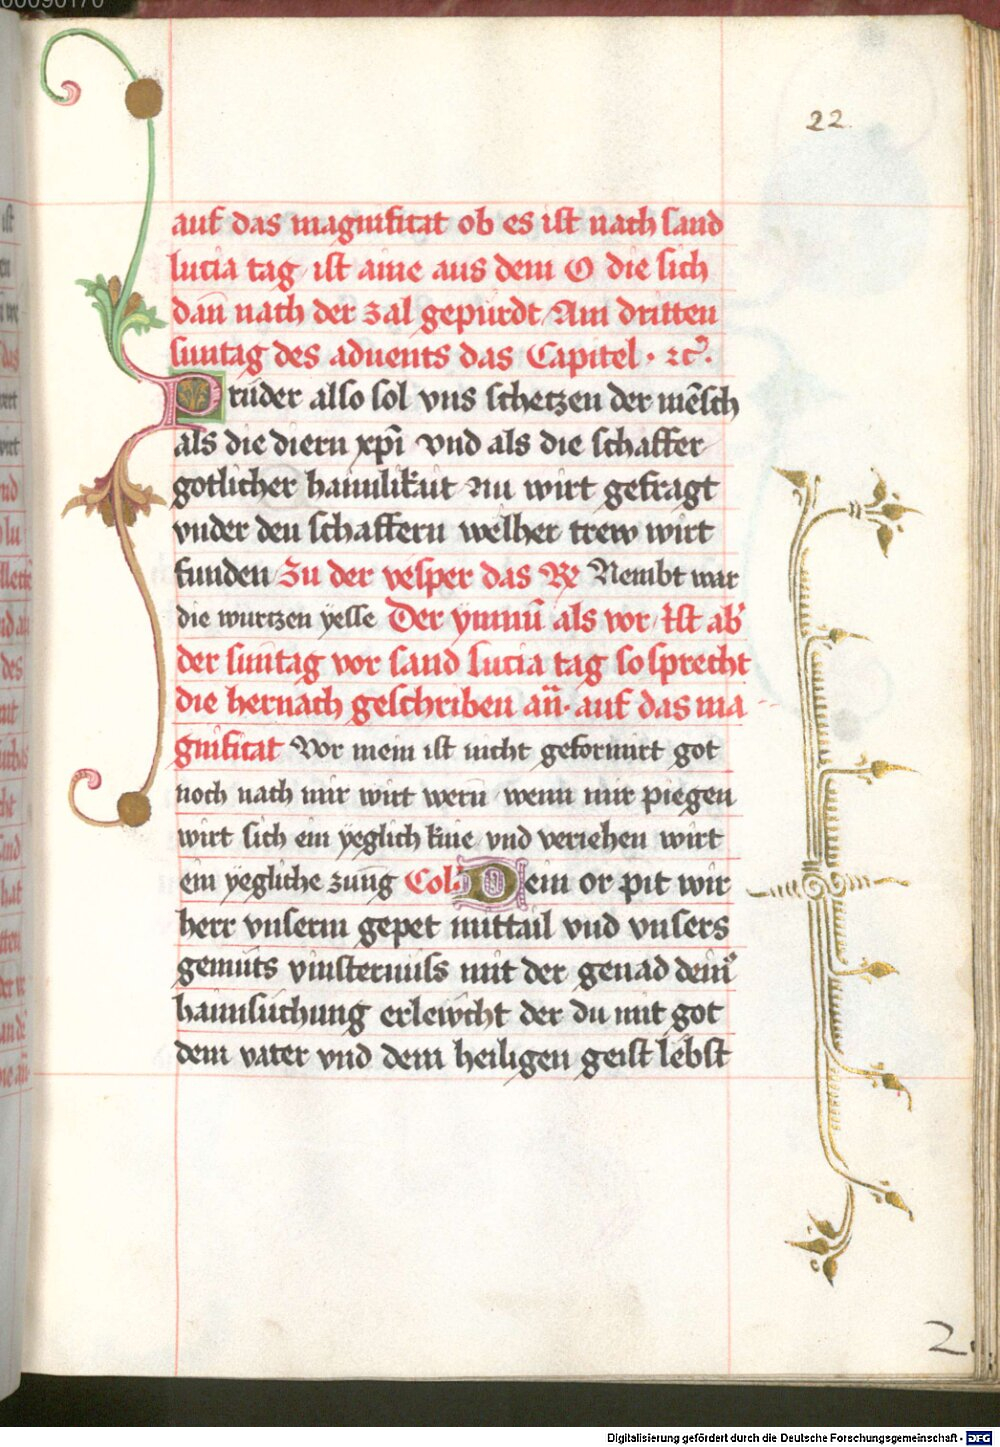 22
auf das magnificat ob es ist nach sand
lucia tag ist aine aus dem O die sich
dan̄ nach der zal gepürdt Am dritten
suntag des aduents das Capitel · ꝛc̃.
Brüder also sol vns schetzen der mẽsch
als die diern xp̄i vnd als die schaffer
gotlicher haimlikait Nu wirt gefragt
vnder den schaffern welher trew wirt
funden Zu der vesper das Re Nembt war
die wurtzen yesse Der ymnū als vor Ist ab̾
der suntag vor sand lucia tag so sprecht
die hernach geschriben an̄· auf das ma
gnificat Vor mein ist nicht geformirt got
noch nach mir wirt wern̄ wenn mir piegen
wirt sich ein yeglich knie vnd veriehen wirt
ein yegliche zung Col: Dein or pit wir
herr vnserm gepet mittail vnd vnsers
gemüts vinsternuss mit der genad deiner̾
haimsuchung erlewcht der du mit got
dem vater vnd dem heiligen geist lebst
Digitalisierung gefördert durch die Deutsche Forschungsgemeinschaft - DFG